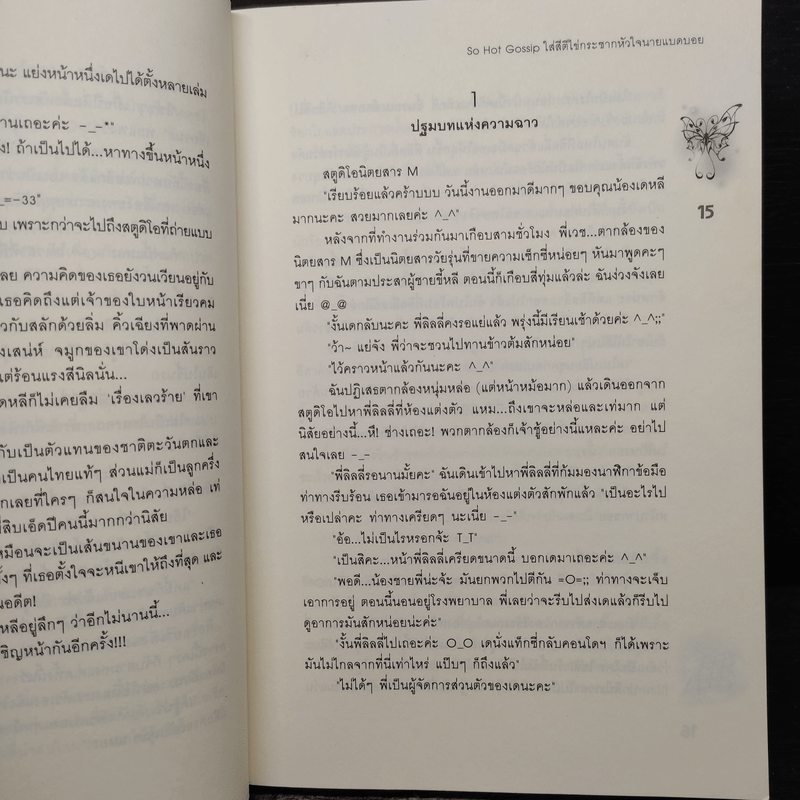 นะ แย่งหน้าหนึ่งเดไปได้ตั้งหลายเล่ม
านเถอะค่ะ -_-*"
ง! ถ้าเป็นไปได้...หาทางขึ้นหน้าหนึ่ง
_=-33"
บ เพราะกว่าจะไปถึงสตูดิโอที่ถ่ายแบบ
เลย ความคิดของเธอยังวนเวียนอยู่กับ
เธอคิดถึงแต่เจ้าของใบหน้าเรียวคม
วกับสลักด้วยลิ่ม คิ้วเฉียงที่พาดผ่าน
งเสน่ห์ จมูกของเขาโด่งเป็นสันราว
แต่ร้อนแรงสีนิลนั่น...
ดหลีก็ไม่เคยลืม 'เรื่องเลวร้าย' ที่เขา
กับเป็นตัวแทนของชาติตะวันตกและ
เป็นคนไทยแท้ๆ ส่วนแม่ก็เป็นลูกครึ่ง
กเลยที่ใครๆ ก็สนใจในความหล่อ เท่
สิบเอ็ดปีคนนี้มากกว่านิสัย
หมือนจะเป็นเส้นขนานของเขาและเธอ
ั้งๆ ที่เธอตั้งใจจะหนีเขาให้ถึงที่สุด และ
นอดีต!
หลีอยู่ลึกๆ ว่าอีกไม่นานนี้...
ชิญหน้ากันอีกครั้ง!!!
So Hot Gossip ใส่สีตีไข่กระชากหัวใจนายแบดบอย
1
ปฐมบทแห่งความฉาว
15
สตูดิโอนิตยสาร M
"เรียบร้อยแล้วคร้าบบบ วันนี้งานออกมาดีมากๆ ขอบคุณน้องเดหลี
มากนะคะ สวยมากเลยค่ะ ^_^"
หลังจากที่ทำงานร่วมกันมาเกือบสามชั่วโมง พี่เวช...ตากล้องของ
นิตยสาร M ซึ่งเป็นนิตยสารวัยรุ่นที่ขายความเซ็กซี่หน่อยๆ หันมาพูดคะๆ
ขาๆ กับฉันตามประสาผู้ชายขี้หลี ตอนนี้ก็เกือบสี่ทุ่มแล้วล่ะ ฉันง่วงจังเลย
เนี่ย @_@
"งั้นเดกลับนะคะ พี่ลิลลี่คงรอแย่แล้ว พรุ่งนี้มีเรียนเช้าด้วยค่ะ ^_^;;"
"ว้า~ แย่จัง พี่ว่าจะชวนไปทานข้าวต้มสักหน่อย"
"ไว้คราวหน้าแล้วกันนะคะ ^_^"
ฉันปฏิเสธตากล้องหนุ่มหล่อ (แต่หน้าหม้อมาก) แล้วเดินออกจาก
สตูดิโอไปหาพี่ลิลลี่ที่ห้องแต่งตัว แหม...ถึงเขาจะหล่อและเท่มาก แต่
นิสัยอย่างนี้...หึ! ช่างเถอะ! พวกตากล้องก็เจ้าชู้อย่างนี้แหละค่ะ อย่าไป
สนใจเลย -_-
"พี่ลิลลี่รอนานมั้ยคะ" ฉันเดินเข้าไปหาพี่ลิลลี่ที่ก้มมองนาฬิกาข้อมือ
ท่าทางรีบร้อน เธอเข้ามารอฉันอยู่ในห้องแต่งตัวสักพักแล้ว "เป็นอะไรไป
หรือเปล่าคะ ท่าทางเครียดๆ นะเนี่ย -_-"
"อ้อ...ไม่เป็นไรหรอกจ้ะ T_T"
"เป็นสิคะ...หน้าพี่ลิลลี่เครียดขนาดนี้ บอกเดมาเถอะค่ะ ^_^"
"พอดี...น้องชายพี่น่ะจ้ะ มันยกพวกไปตีกัน =O=;; ท่าทางจะเจ็บ
เอาการอยู่ ตอนนี้นอนอยู่โรงพยาบาล พี่เลยว่าจะรีบไปส่งเดแล้วก็รีบไป
ดูอาการมันสักหน่อยน่ะค่ะ"
"งั้นพี่ลิลลี่ไปเถอะค่ะ O_O เดนั่งแท็กซี่กลับคอนโดฯ ก็ได้เพราะ
มันไม่ไกลจากที่นี่เท่าไหร่ แป๊บๆ ก็ถึงแล้ว"
"ไม่ได้ๆ พี่เป็นผู้จัดการส่วนตัวของเดนะคะ"